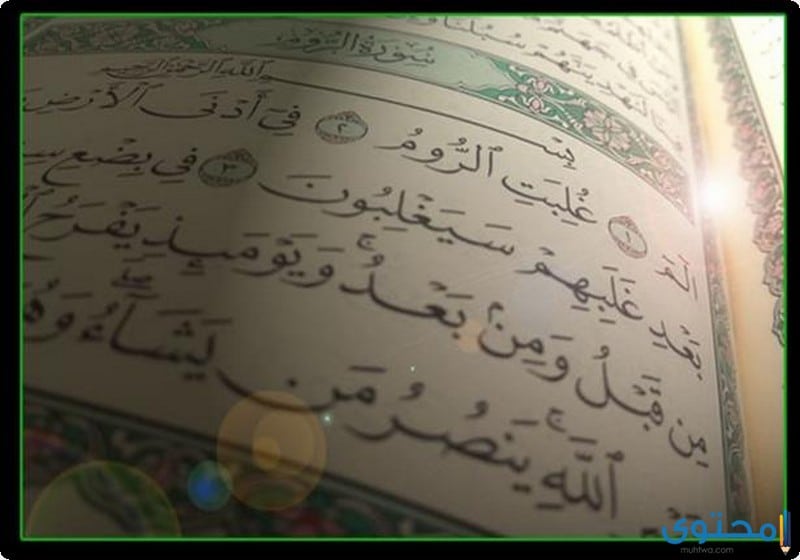 لَنَهْدِيَنَّهُمْ سُبُلَنَا
سُورَةُ الرُّومِ
بِسْمِ ٱللَّهِ ٱلرَّحْمَٰنِ ٱلرَّحِيمِ
الٓمٓ ١ غُلِبَتِ ٱلرُّومُ ٢ فِىٓ أَدْنَى ٱلْأَرْضِ
بَعْدِ غَلَبِهِمْ سَيَغْلِبُونَ ٣ فِى بِضْعِ
مِن قَبْلُ وَمِنۢ بَعْدُ ۚ وَيَوْمَئِذٍ يَفْرَحُ
ٱللَّهِ ۚ يَنصُرُ مَن يَشَآءُ ۖ
محتوى
muhtwa.com